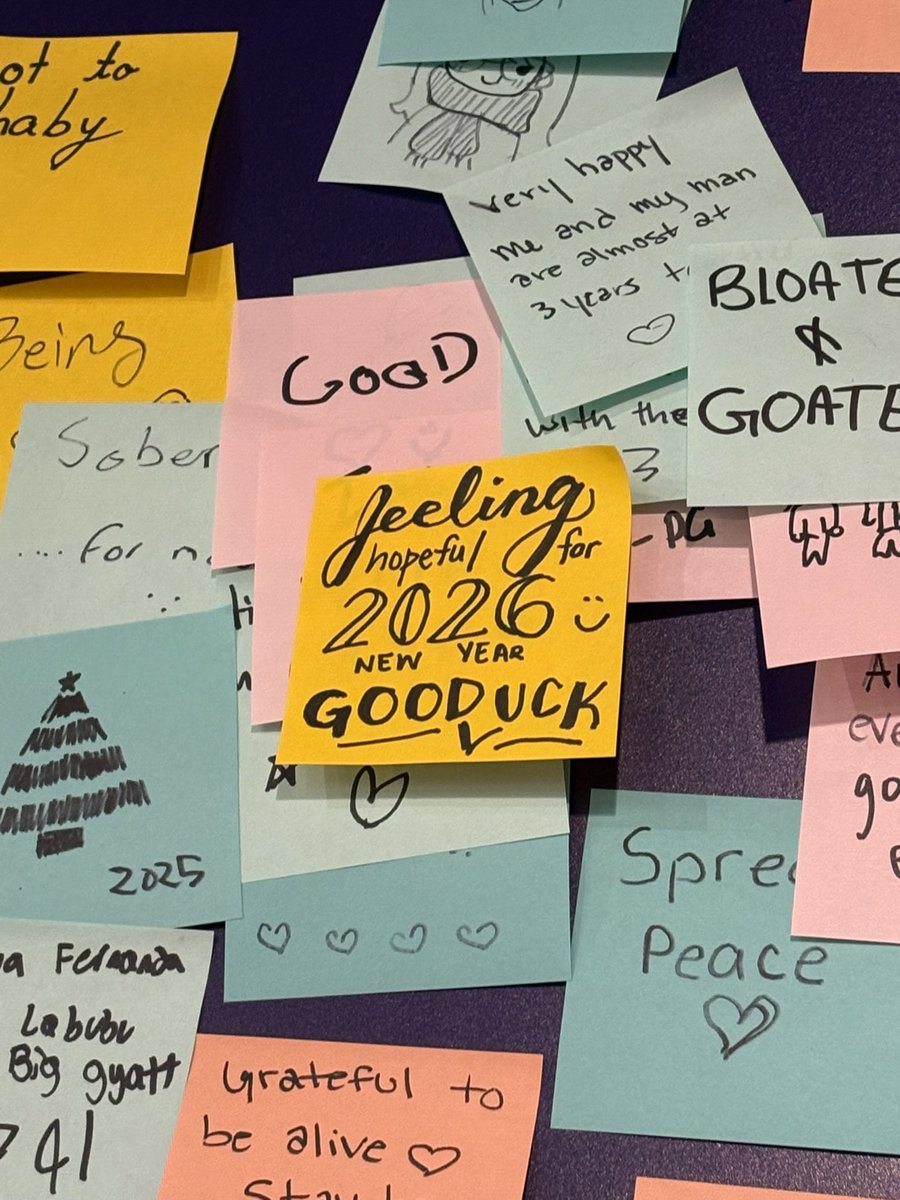 ot to
baby
Being
Sober
.... for n
very happy
me and my man
are almost at
3 years t
BLOATE
&
GOATE
GOOD
with the
3
- DG
feeling
hopeful for
2026 :)
NEW YEAR
GOODUCK
2025
Spre
Peace
Fernanda
Labubu
Big gyatt
41
Grateful to
be alive
eve
go